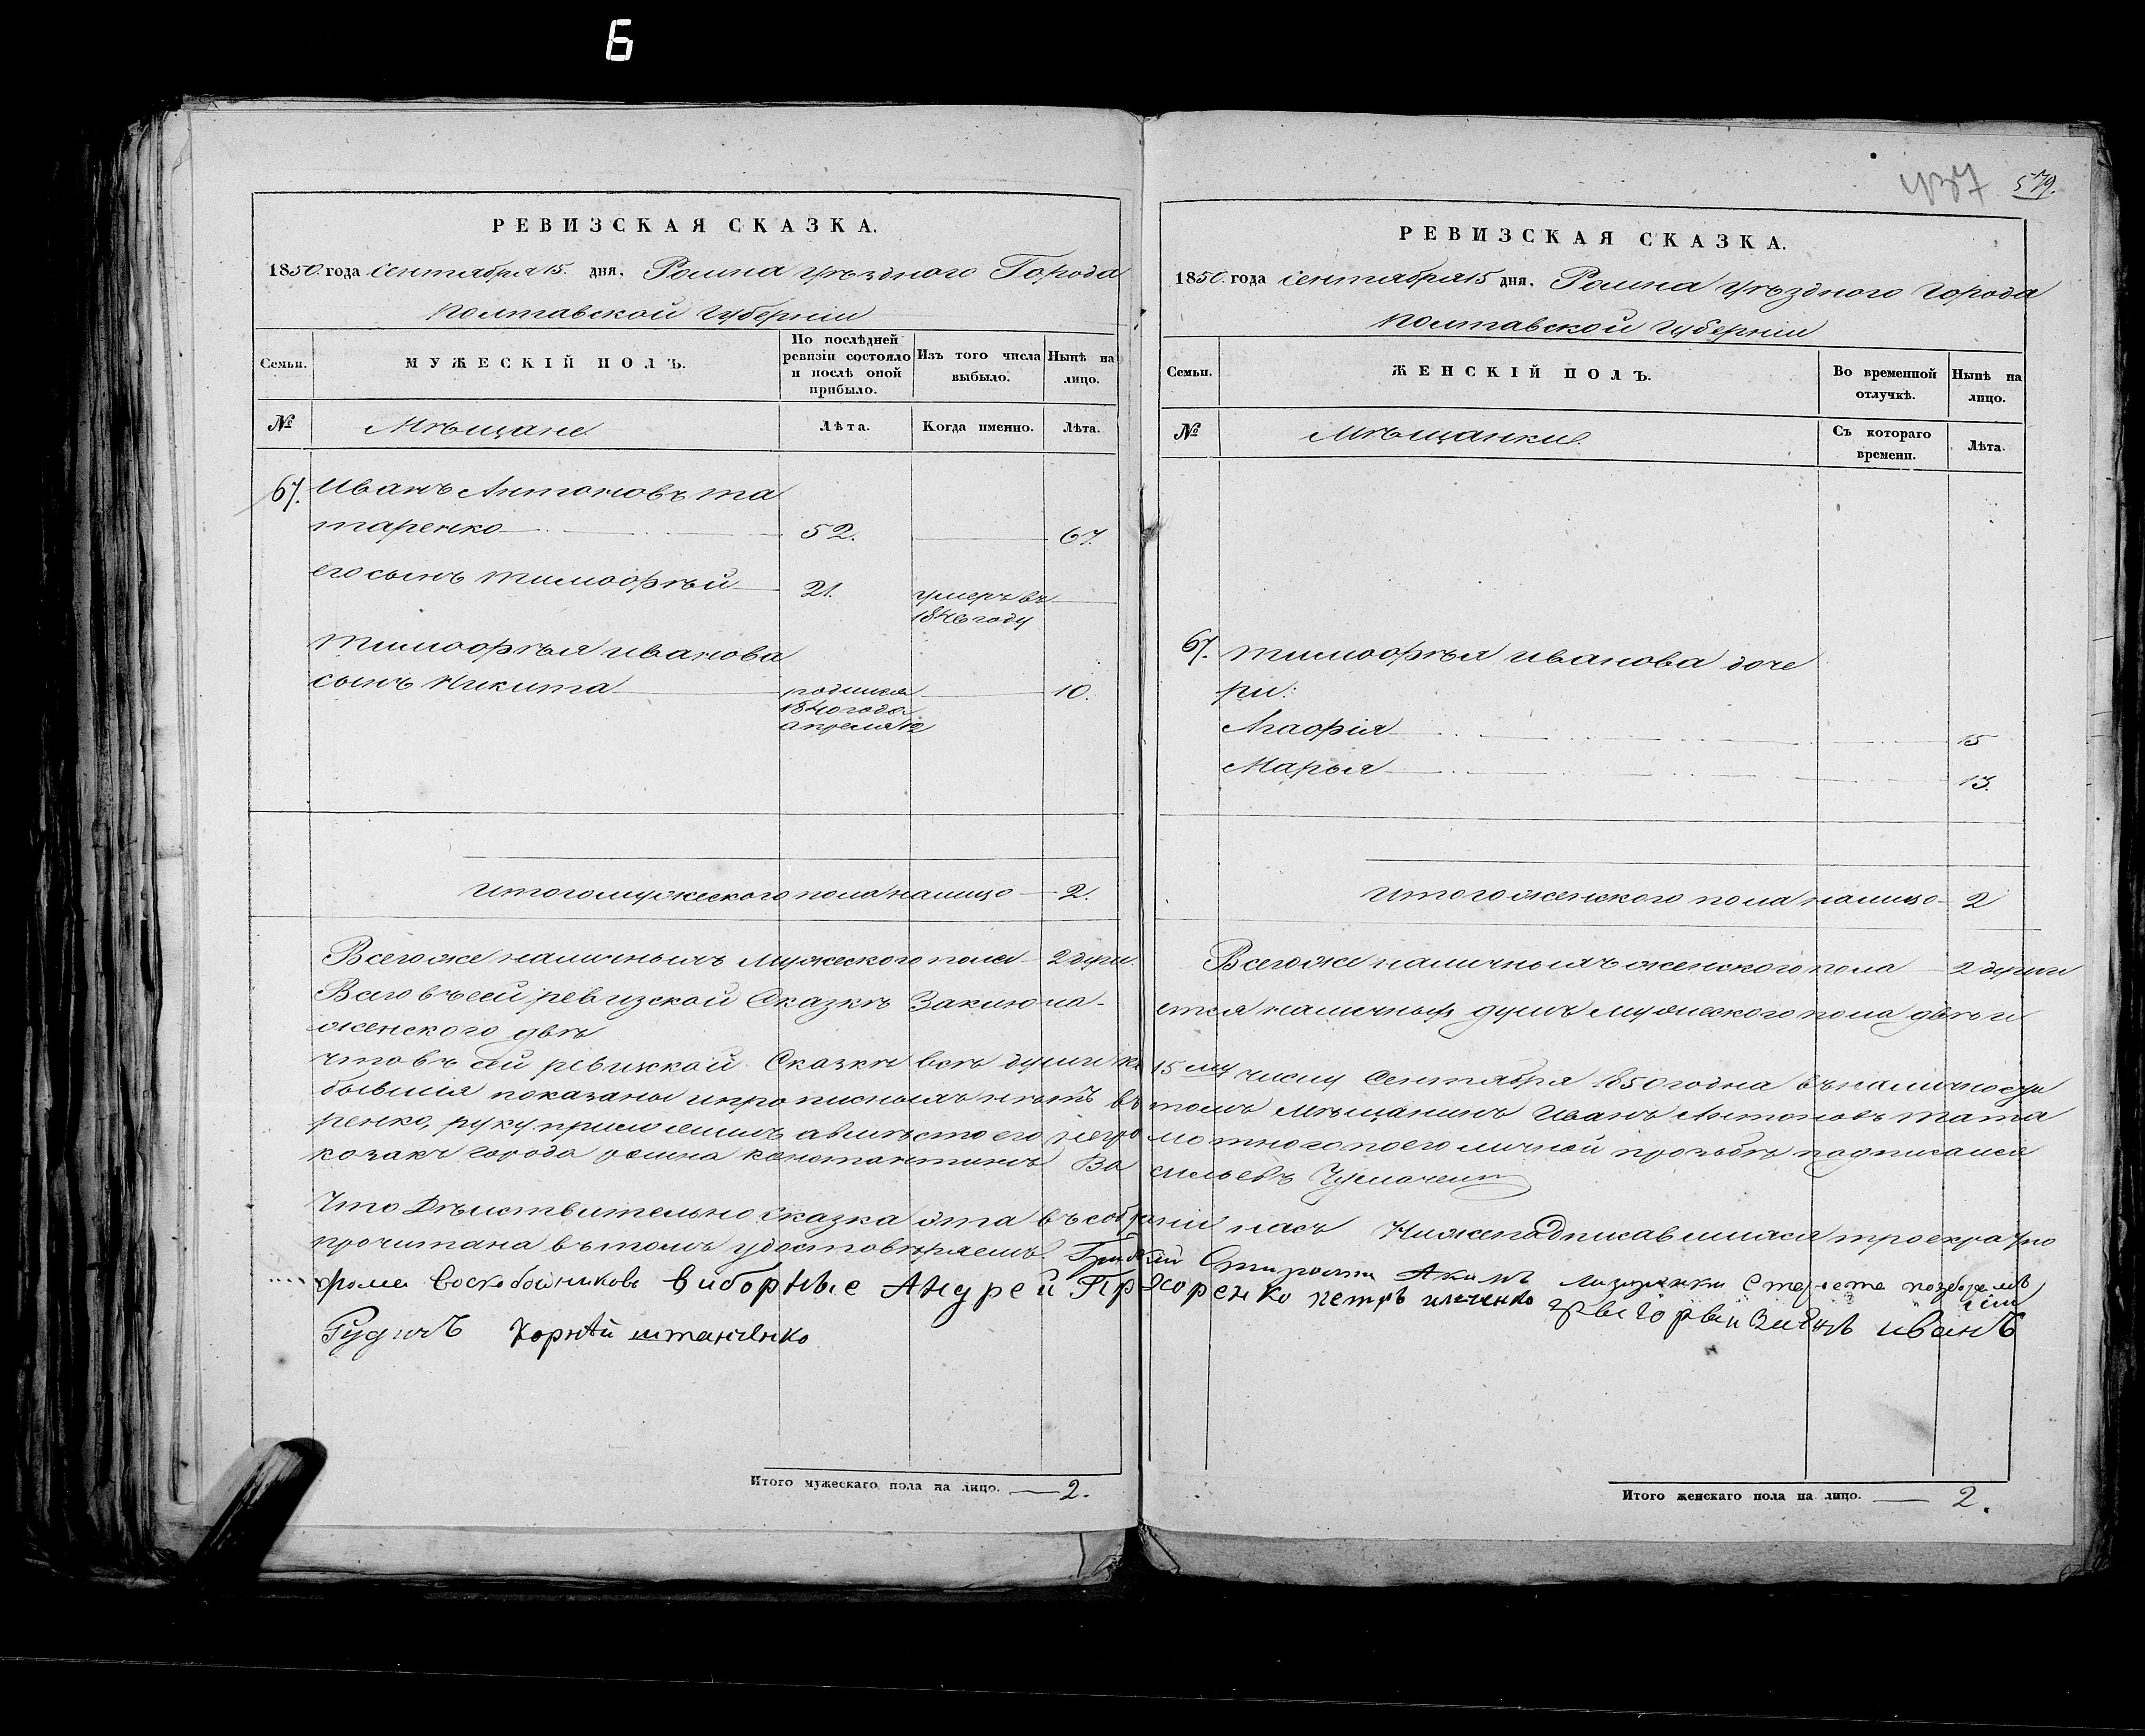 6
РЕВИЗСКАЯ СКАЗКА.
1850 года Сентября 15. дня, Ромна Уѣздного Города
Полтавской Губерніи
Семьи.
МУЖЕСКІЙ ПОЛЪ.
По послѣдней ревизіи состояло и послѣ оной прибыло.
Изъ того числа выбыло.
Нынѣ на лицо.
№
Мѣщане
Лѣта.
Когда именно.
Лѣта.
67. Иванъ Антоновъ Та
таренко 52. 67.
его сынъ Тимофѣй 21. умеръ въ
1846 году
Тимофѣя Иванова
сынъ Никита родился 10.
1840 года
апреля 12
Итого мужеского пола налицо 2.
Всего же наличныхъ мужеского пола 2 души.
Всего въ сей ревизской Сказкѣ Заключа-
женского двѣ
что въ сей ревизкой Сказкѣ всѣ души къ
бывшія показаны и прописныхъ нѣтъ въ
ренко, руку приложилъ авмѣсто его негра
козакъ города ромна константинъ Ва
Что Дѣйствительно Сказка эта въ собраніи
прочитана въ томъ удостовѣряемъ.
фома воскобойниковъ виборные Андрей Прхоренко
Рудичъ Корнѣй штанченко
Итого мужескаго пола на лицо. 2.
437 579.
РЕВИЗСКАЯ СКАЗКА.
1850. года Сентября 15 дня, Ромна Уѣздного Города
Полтавской Губерніи
Семьи.
ЖЕНСКІЙ ПОЛЪ.
Во временной отлучкѣ.
Нынѣ на лицо.
№
Мѣщанки.
Съ котораго времени.
Лѣта.
67. Тимофѣя Иванова доче
ри:
Агафія 15
Марья 13.
Итого женского пола налицо 2
Всего же наличныхъ женского пола 2 души
ется наличныхъ душъ мужеского пола двѣ и
15му числу Сентября 1850 года на въ наличности
томъ Мѣщанинъ Иванъ Антоновъ Тата
мотного по его личной прозьбѣ подписался
сильевъ
насъ Нижеподписавшихся троекратно
Петръ Иванъ
Итого женскаго пола на лицо. 2.